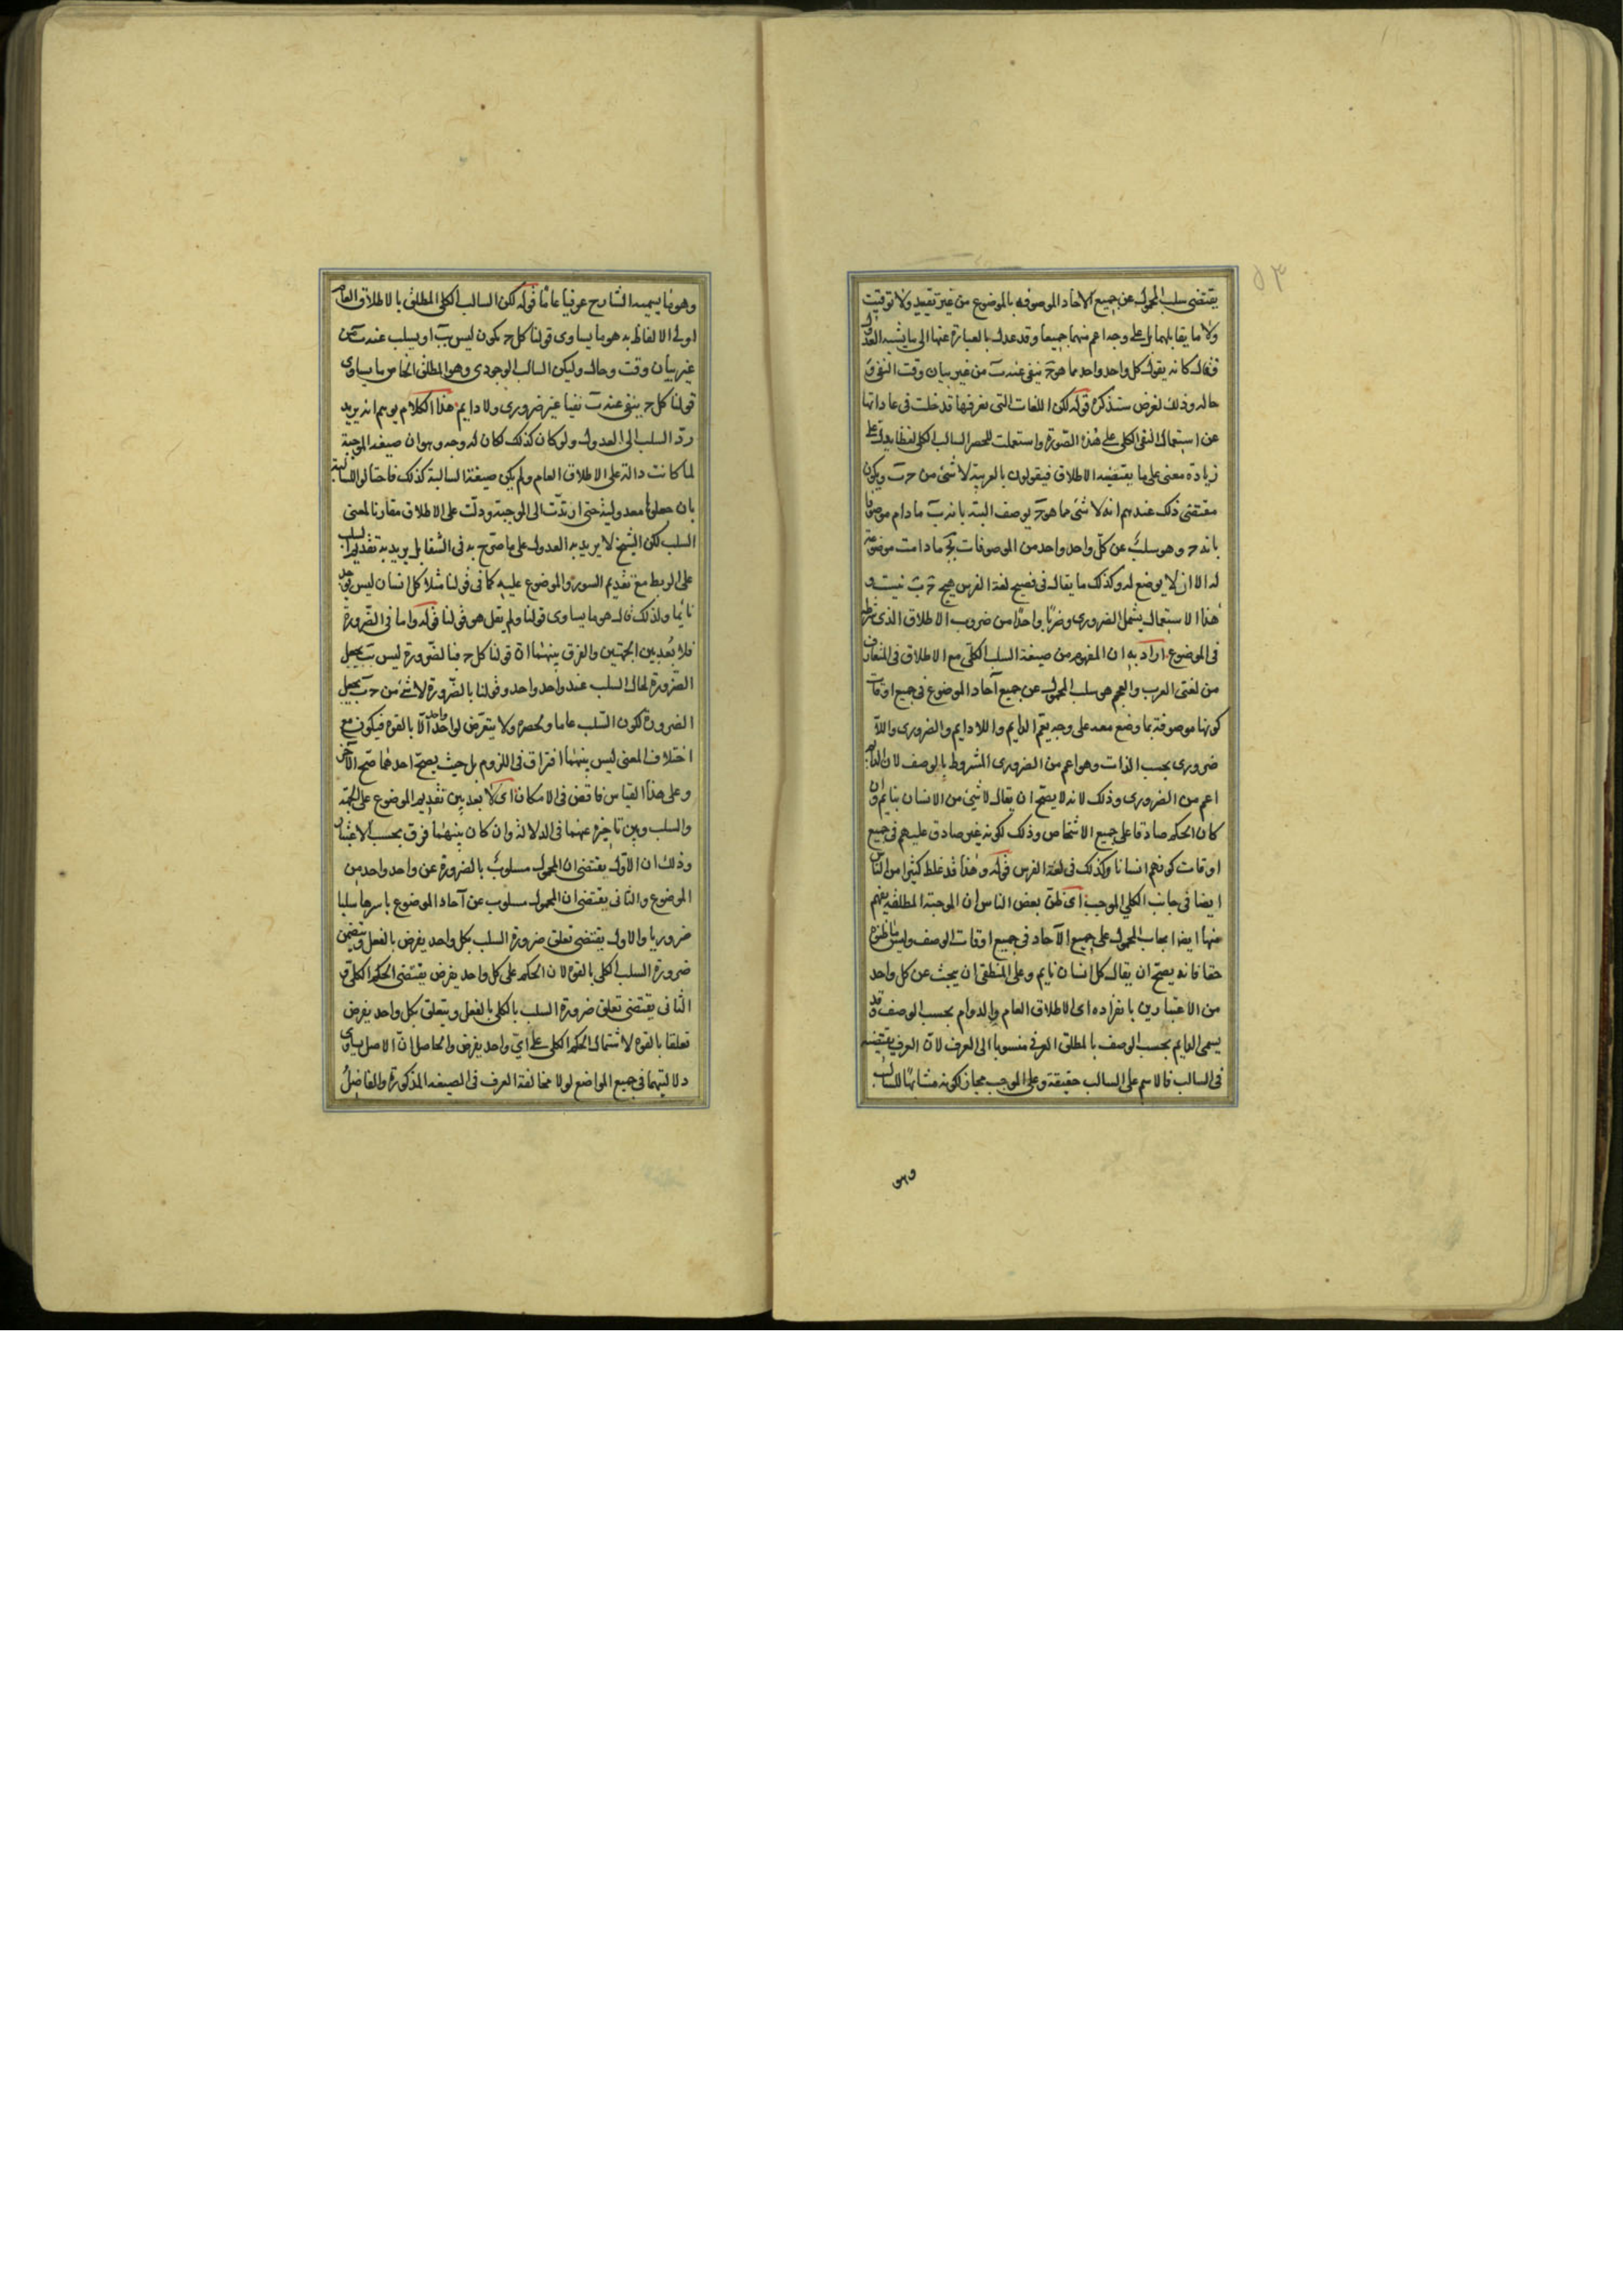 ٥٣
يقتضى سلب المحمول عن جميع الآحاد الموصوفة بالموضوع من غير تقييد ولا توقيت
ولا ما يقابلهما بل على وجه اعم منهما جميعا وقد عدل بالعبارة عنها الى ما يشبه العدول
فقال كانه يقول كل واحد واحد مما هو ج ينفى عنه ب من غير بيان وقت النفى و
حاله وذلك لغرض سنذكره قوله لكن اللغات التى نعرفها قد خلت فى عاداتها
عن استعمال النفى الكلى على هذه الصورة واستعملت للحصر السالب الكلى لفظا يدل على
زيادة معنى على ما يقتضيه الاطلاق فيقولون بالعربية لا شئ من ج ب ويكون
مقتضى ذلك عندهم انه لا شئ مما هو ج يوصف البتة بانه ب ما دام موصوفا
بانه ج وهو سلب عن كل واحد واحد من الموصوفات بج ما دامت موضوعة
له الا ان لا يوضع له وكذلك ما يقال فى فصيح لغة الفرس هيچ ج ب نيست و
هذا الاستعمال يشمل الضرورى وضربا واحدا من ضروب الاطلاق الذى شرطه
فى الموضوع اراد به ان المفهوم من صيغة السلب الكلى مع الاطلاق فى المتعارف
من لغتى العرب والعجم هو سلب المحمول عن جميع آحاد الموضوع فى جميع اوقات
كونها موصوفة بما وضع معه على وجه يعم الدايم واللا دايم والضرورى واللا
ضرورى بحسب الذات وهو اعم من الضرورى المشروط بالوصف لان الدايم
اعم من الضرورى وذلك لانه لا يصح ان يقال لا شئ من الانسان بنايم وان
كان الحكم صادقا على جميع الاشخاص وذلك لكونه غير صادق عليهم فى جميع
اوقات كونهم انسانا وكذلك فى لغة الفرس قوله وهذا قد غلط كثيرا من الناس
ايضا فى جانب الكلى الموجب اى ظن بعض الناس ان الموجبة المطلقة يفهم
منها ايضا ايجاب المحمول على جميع الآحاد فى جميع اوقات الوصف وليس ما ظنوه
حقا فانه يصح ان يقال كل انسان نايم وعلى المنطقى ان يبحث عن كل واحد
من الاعتبارين بانفراده اى الاطلاق العام والدوام بحسب الوصف وقد
يسمى الدايم بحسب الوصف بالمطلق العرفى منسوبا الى العرف لان العرف يقتضيه
فى السالب فالاسم على السالب حقيقة وعلى الموجب مجاز لكونه مشابها للسالب
وهو
وهو ما يسميه الشارح عرفيا عاما قوله لكن السالب الكلى المطلق بالاطلاق العام
اولى الالفاظ به هو ما يساوى قولنا كل ج يكون ليس ب او يسلب عنه ب من
غير بيان وقت وحال وليكن السالب الوجودى وهو المطلق الخاص ما يساوى
قولنا كل ج ينفى عنه ب نفيا غير ضرورى ولا دايم هذا الكلام يوهم انه يريد
رد السلب الى العدول ولو كان كذلك لكان له وجه وهو ان صيغة الموجبة
لما كانت دالة على الاطلاق العام ولم يكن صيغة السالبة كذلك فاحتالوا للسالبة
بان جعلوها معدولية حتى ارتدت الى الموجبة ودلت على الاطلاق مقارنا لمعنى
السلب لكن الشيخ لا يريد به العدول على ما صرح به فى الشفا بل يريد به تقديم السلب
على الربط مع تقديم السور والموضوع عليه كما فى قولنا مثلا كل انسان ليس يوجد
نايما ولذلك قال هو ما يساوى قولنا ولم يقل هو قولنا قوله واما فى الضرورة
فلا بعد بين الجهتين والفرق بينهما ان قولنا كل ج فبالضرورة ليس ب يجعل
الضرورة لحال السلب عند واحد واحد وقولنا بالضرورة لا شئ من ج ب يجعل
الضرورة لكون السلب عاما ولحصره ولا يتعرض لواحد واحد الا بالقوة فيكون مع
اختلاف المعنى ليس بينهما افتراق فى اللزوم بل حيث يصح احدهما صح الآخر
وعلى هذا القياس فاقض فى الامكان اى لا بعد بين تقديم الموضوع على الجهة
والسلب وبين تاخيره عنهما فى الدلالة وان كان بينهما فرق بحسب الاعتبار
وذلك ان الاول يقتضى ان المحمول مسلوب بالضرورة عن واحد واحد من
الموضوع والثانى يقتضى ان المحمول مسلوب عن آحاد الموضوع باسرها سلبا
ضروريا والاول يقتضى تعلق ضرورة السلب بكل واحد يفرض بالفعل ويتضمن
ضرورة السلب الكلى بالقوة لان الحكم على كل واحد يفرض يقتضى الحكم الكلى و
الثانى يقتضى تعلق ضرورة السلب بالكلى بالفعل ويتعلق بكل واحد يفرض
تعلقا بالقوة لاشتمال الحكم الكلى على اى واحد يفرض والحاصل ان الاصل يساوى
دلالتيهما فى جميع المواضع لولا مخالفة العرف فى الصيغة المذكورة والفاضل